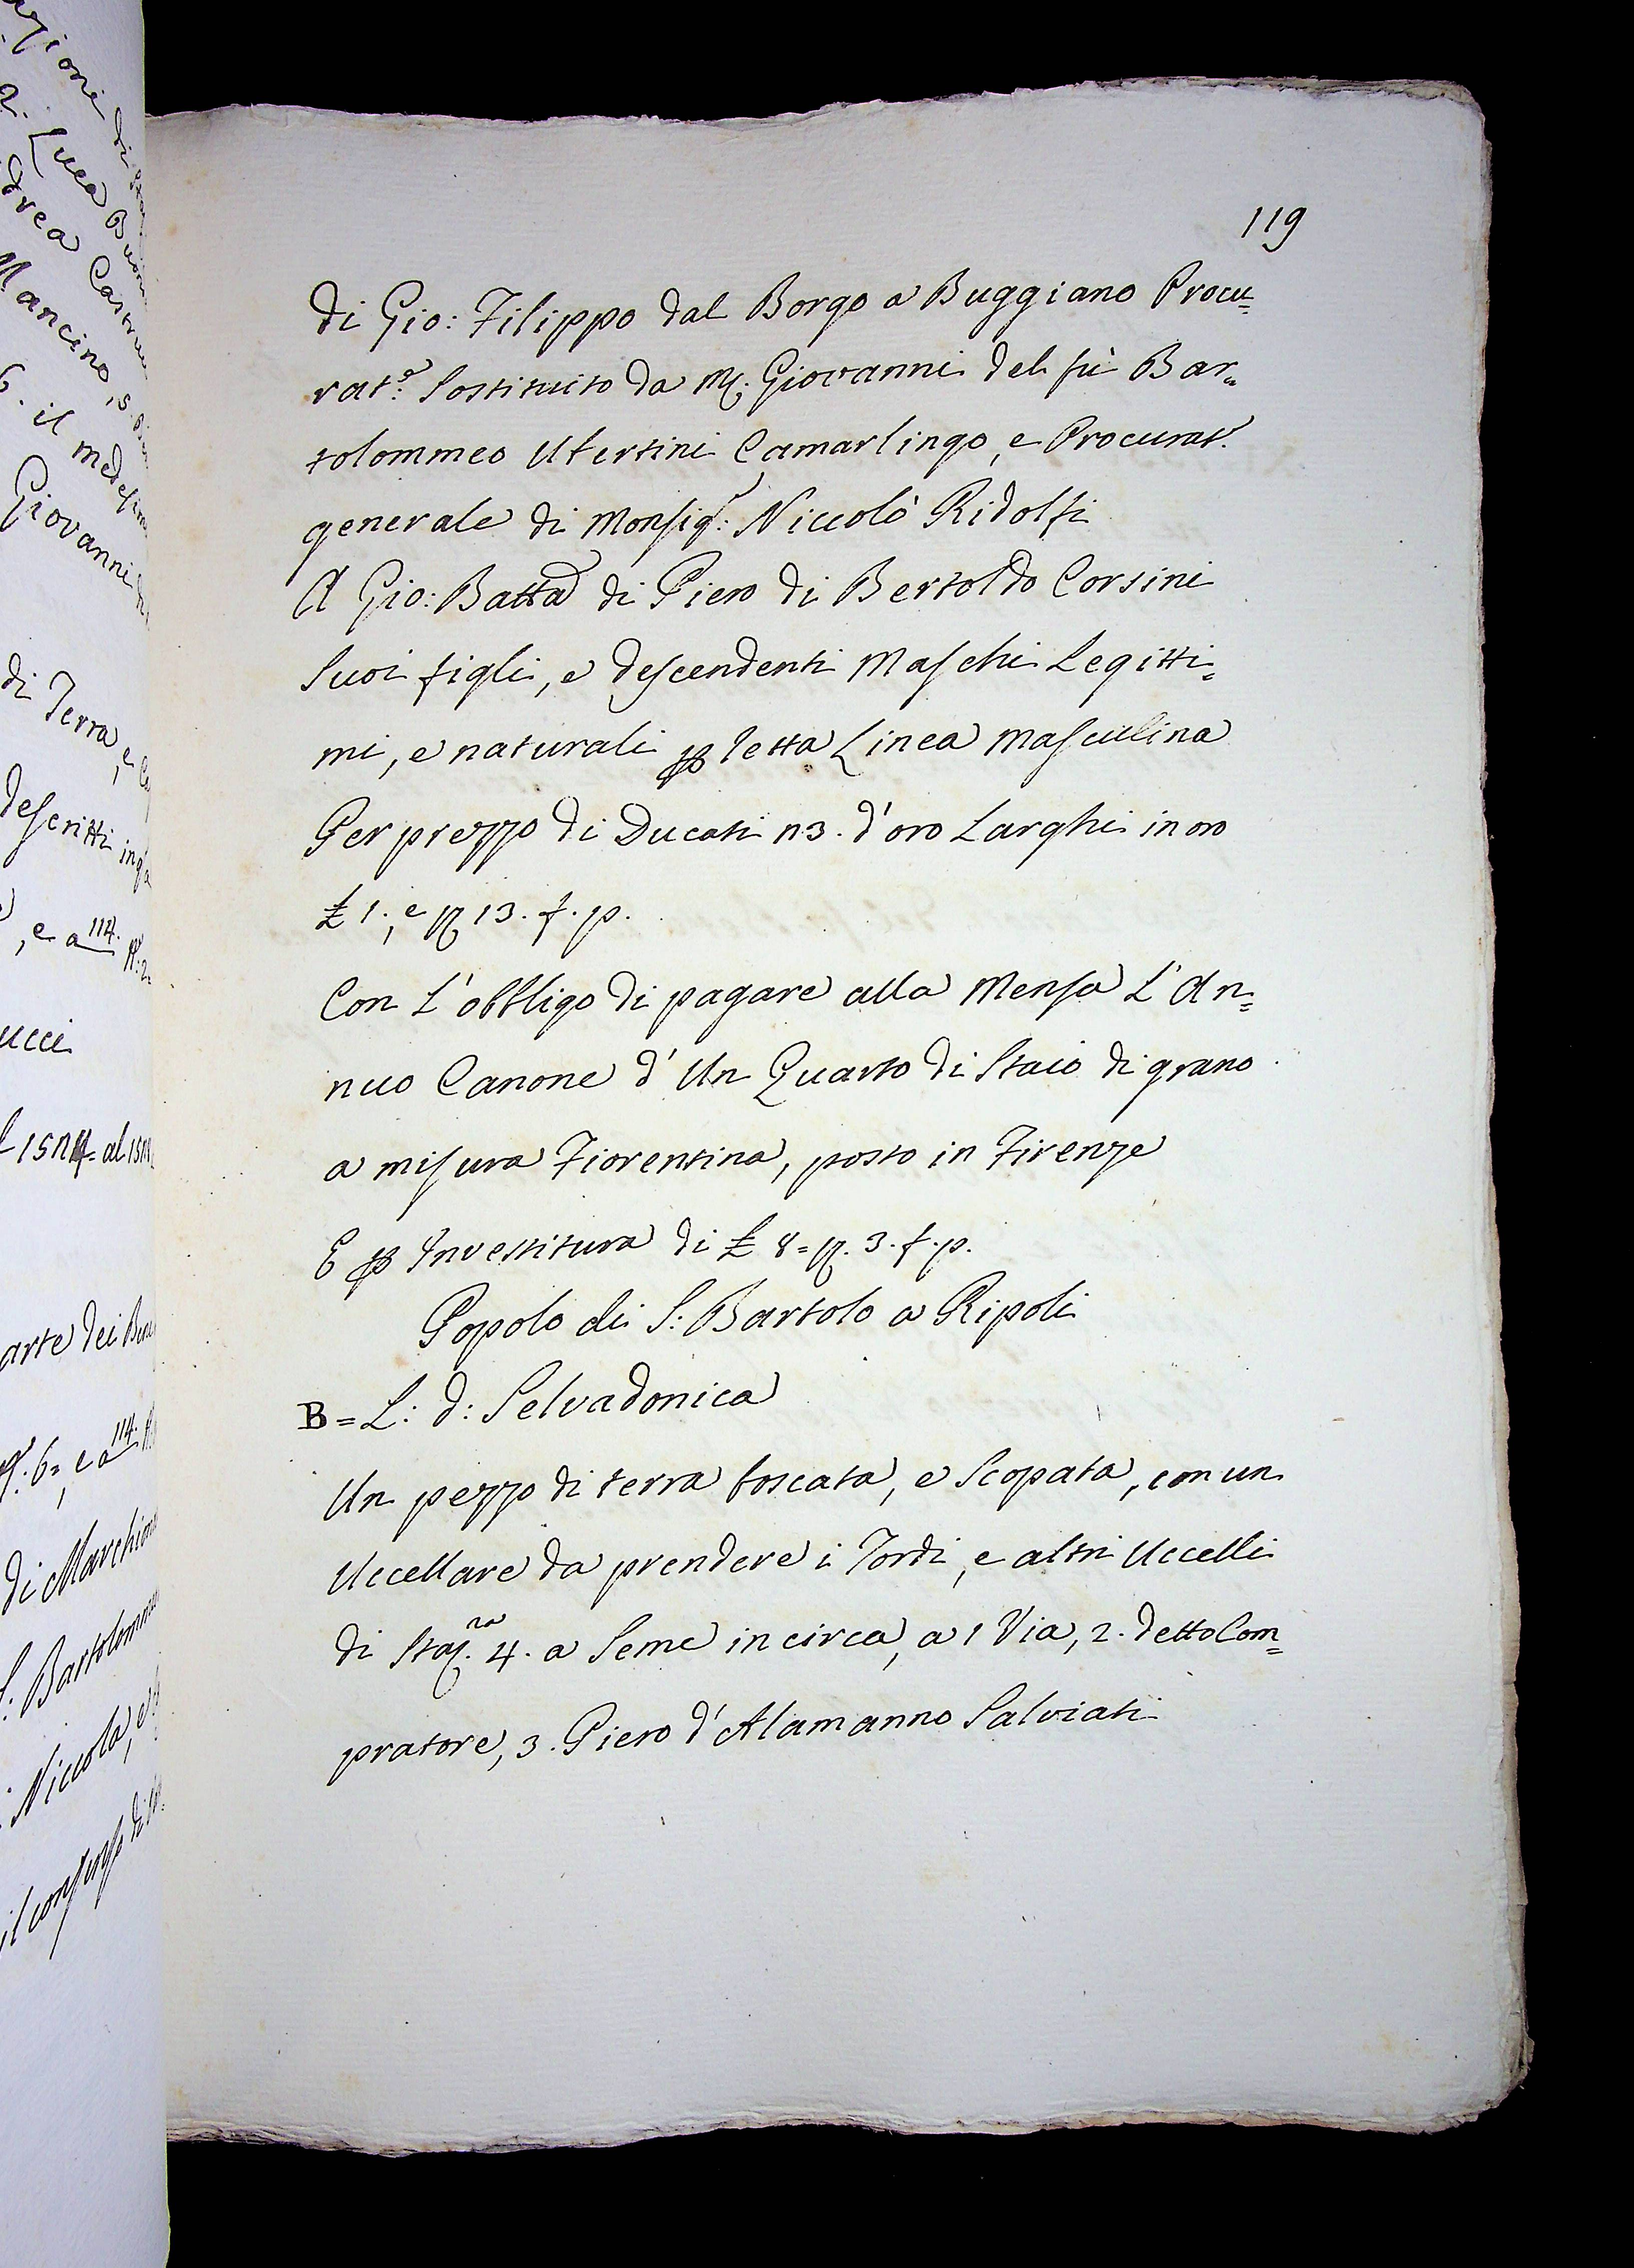 119
di Gio: Filippo dal Borgo a Buggiano Procu=
rat.e Sostituito da M. Giovanni del fù Bar=
tolommeo Ubertini Camarlingo, e Procurat.e
generale di Monsig.r: Niccolò Ridolfi
A Gio: Batta di Piero di Bertoldo Corsini
Suoi figli, e descendenti Maschi Legitti=
mi, e naturali p retta Linea Masculina
Per prezzo di Ducati n3. d'oro Larghi in oro
£ 1., e 13. f. p.
Con L'obbligo di pagare alla Mensa L'An=
nuo Canone d'Un Quarto di Staio di grano
a misura Fiorentina, posto in Firenze
E p Investitura di £ 8= 3. f. p.
Popolo di S: Bartolo a Ripoli
B= L: d: Selvadonica
Un pezzo di terra boscata, e Scopata, con un
Uccellare da prendere i Tordi, e altri Uccelli
di Sta.ra 4. a Seme in circa, a 1 Via, 2. detto Com=
pratore, 3. Piero d'Alamanno Salviati
di Terra, e
descritti
, e a 114.
ucci
al
arte dei
: 6=, e a 114.
di
S: Bartolomm
Niccola, e
il
Luca
Mancino, s.
il medesim
Giovanni